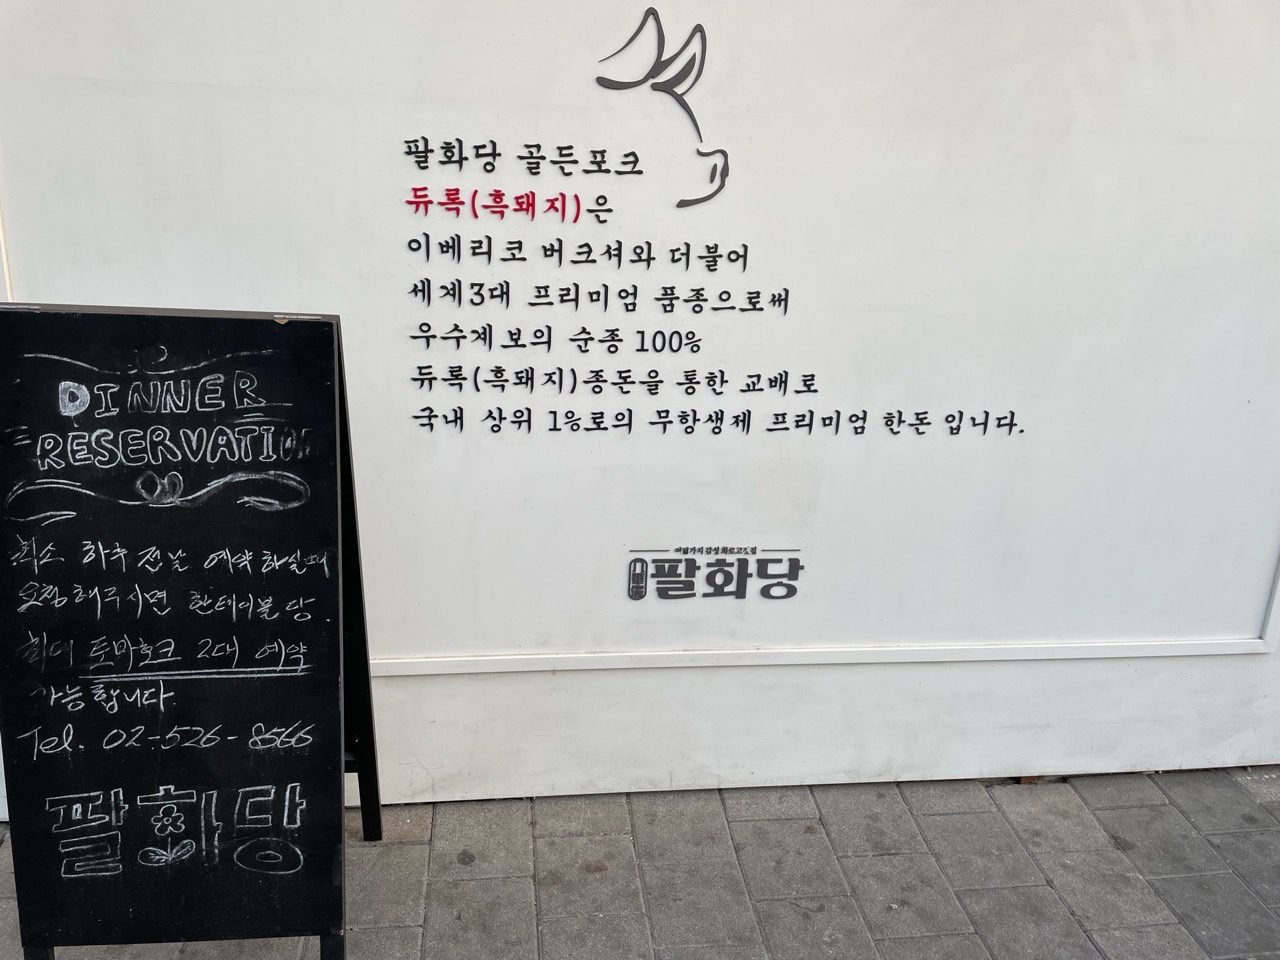 팔화당 골든포크
듀록(흑돼지)은
이베리코 버크셔와 더불어
세계3대 프리미엄 품종으로써
우수계보의 순종 100%
듀록(흑돼지)종돈을 통한 교배로
국내 상위 1%로의 무항생제 프리미엄 한돈 입니다.
팔화당
DINNER
RESERVATION
최소 하루 전날 예약하실때
요청해주시면 한테이블 당.
최대 토마호크 2대 예약
가능합니다.
Tel. 02-526-8566
팔화당